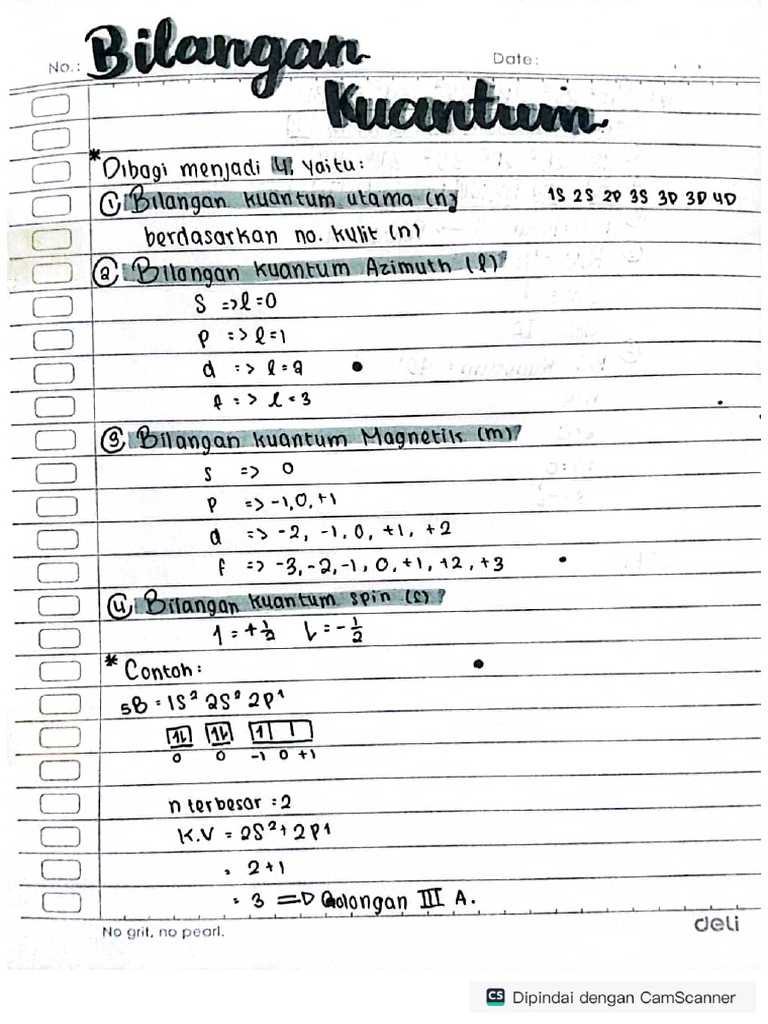 No.:
Bilangan
Date:
Kuantum
*Dibagi menjadi 4, yaitu:
① Bilangan kuantum utama (n)
1S 2S 2P 3S 3P 3D 4D
berdasarkan no. kulit (n)
② Bilangan kuantum Azimuth (l)
S => l = 0
P => l = 1
d => l = 2
f => l = 3
③ Bilangan kuantum Magnetik (m)
S => 0
P => -1, 0, +1
d => -2, -1, 0, +1, +2
f => -3, -2, -1, 0, +1, +2, +3
④ Bilangan kuantum spin (s)
↑ = +1/2 ↓ = -1/2
* Contoh:
5B = 1S² 2S² 2P¹
↑↓ ↑↓ ↑
0 0 -1 0 +1
n terbesar = 2
K.V = 2S² + 2P¹
= 2+1
= 3 => Golongan III A.
No grit, no pearl.
deli
CS Dipindai dengan CamScanner